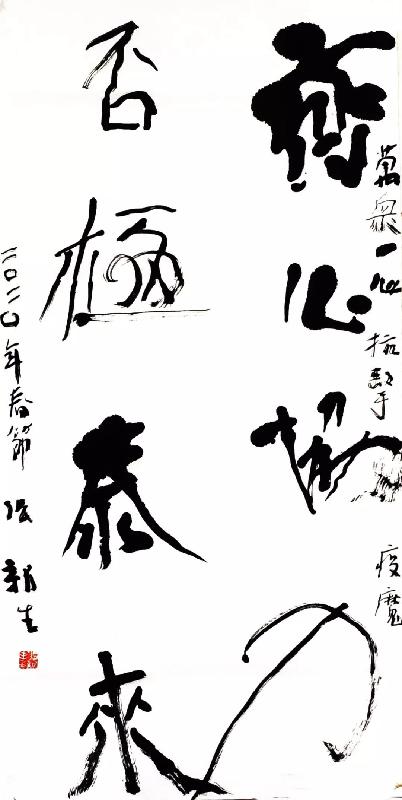 萬衆一心抗疫魔
齊心協力
否極泰來
二〇二〇年春節 张新生